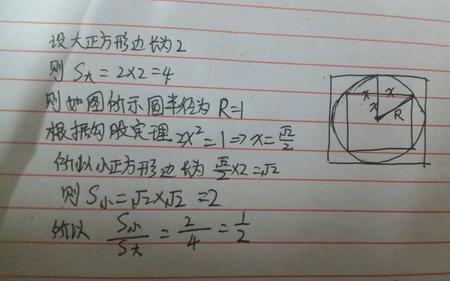 设大正方形边长为2
则 S大 = 2×2 = 4
则如图所示圆半径为 R=1
根据勾股定理 2x² = 1 ⇒ x = √2/2
所以小正方形边长为 √2/2 ×2 = √2
则 S小 = √2 × √2 = 2
所以 S小/S大 = 2/4 = 1/2
x x
x R